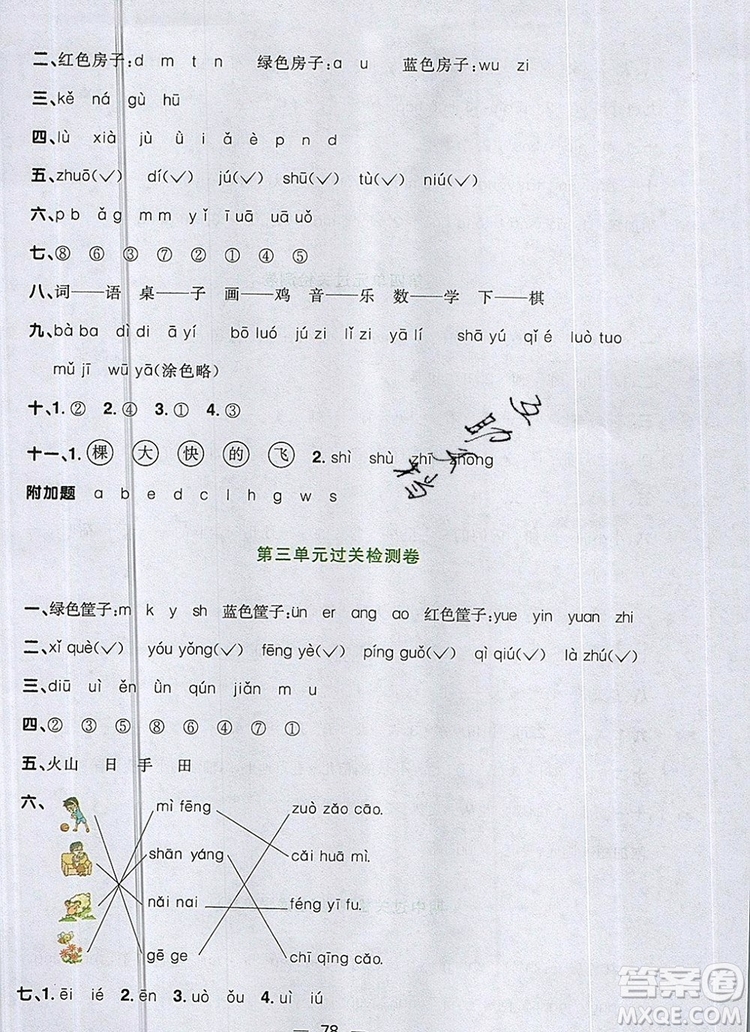 二、红色房子:d m t n 绿色房子:a u 蓝色房子:wu zi
三、kě ná gù hū
四、lù xià jù ǜ ì ǎ è p n d
五、zhuō(✓) dí(✓) jú(✓) shū(✓) tù(✓) niú(✓)
六、p b ǎ g m m y ǐ ī uā uā uǒ
七、⑧ ⑥ ③ ⑦ ② ① ④ ⑤
八、词——语 桌——子 画——鸡 音——乐 数——学 下——棋
九、bà ba dì di ā yí bō luó jú zi lǐ zi yā li shā yú qǐ é luò tuo
mǔ jī wū yā(涂色略)
十、1.② 2.④ 3.① 4.③
十一、1.棵 大 快 的 飞 2.shì shù zhī zhōng
附加题 a b e d c l h g w s
第三单元过关检测卷
一、绿色筐子:m k y sh 蓝色筐子:ün er ang ao 红色筐子:yue yin yuan zhi
二、xǐ què(✓) yóu yǒng(✓) fēng yè(✓) píng guǒ(✓) qì qiú(✓) là zhú(✓)
三、diū uì ěn ùn qún jiǎn m u
四、② ③ ⑤ ⑧ ⑥ ④ ⑦ ①
五、火山 日 手 田
六、
mì fēng zuò zǎo cāo.
shān yáng cǎi huā mì.
nǎi nai féng yī fu.
gē ge chī qīng cǎo.
七、1.ēi ié 2.ēn 3.uò ǒu 4.uì iú
78
答案圈
MXQE.COM